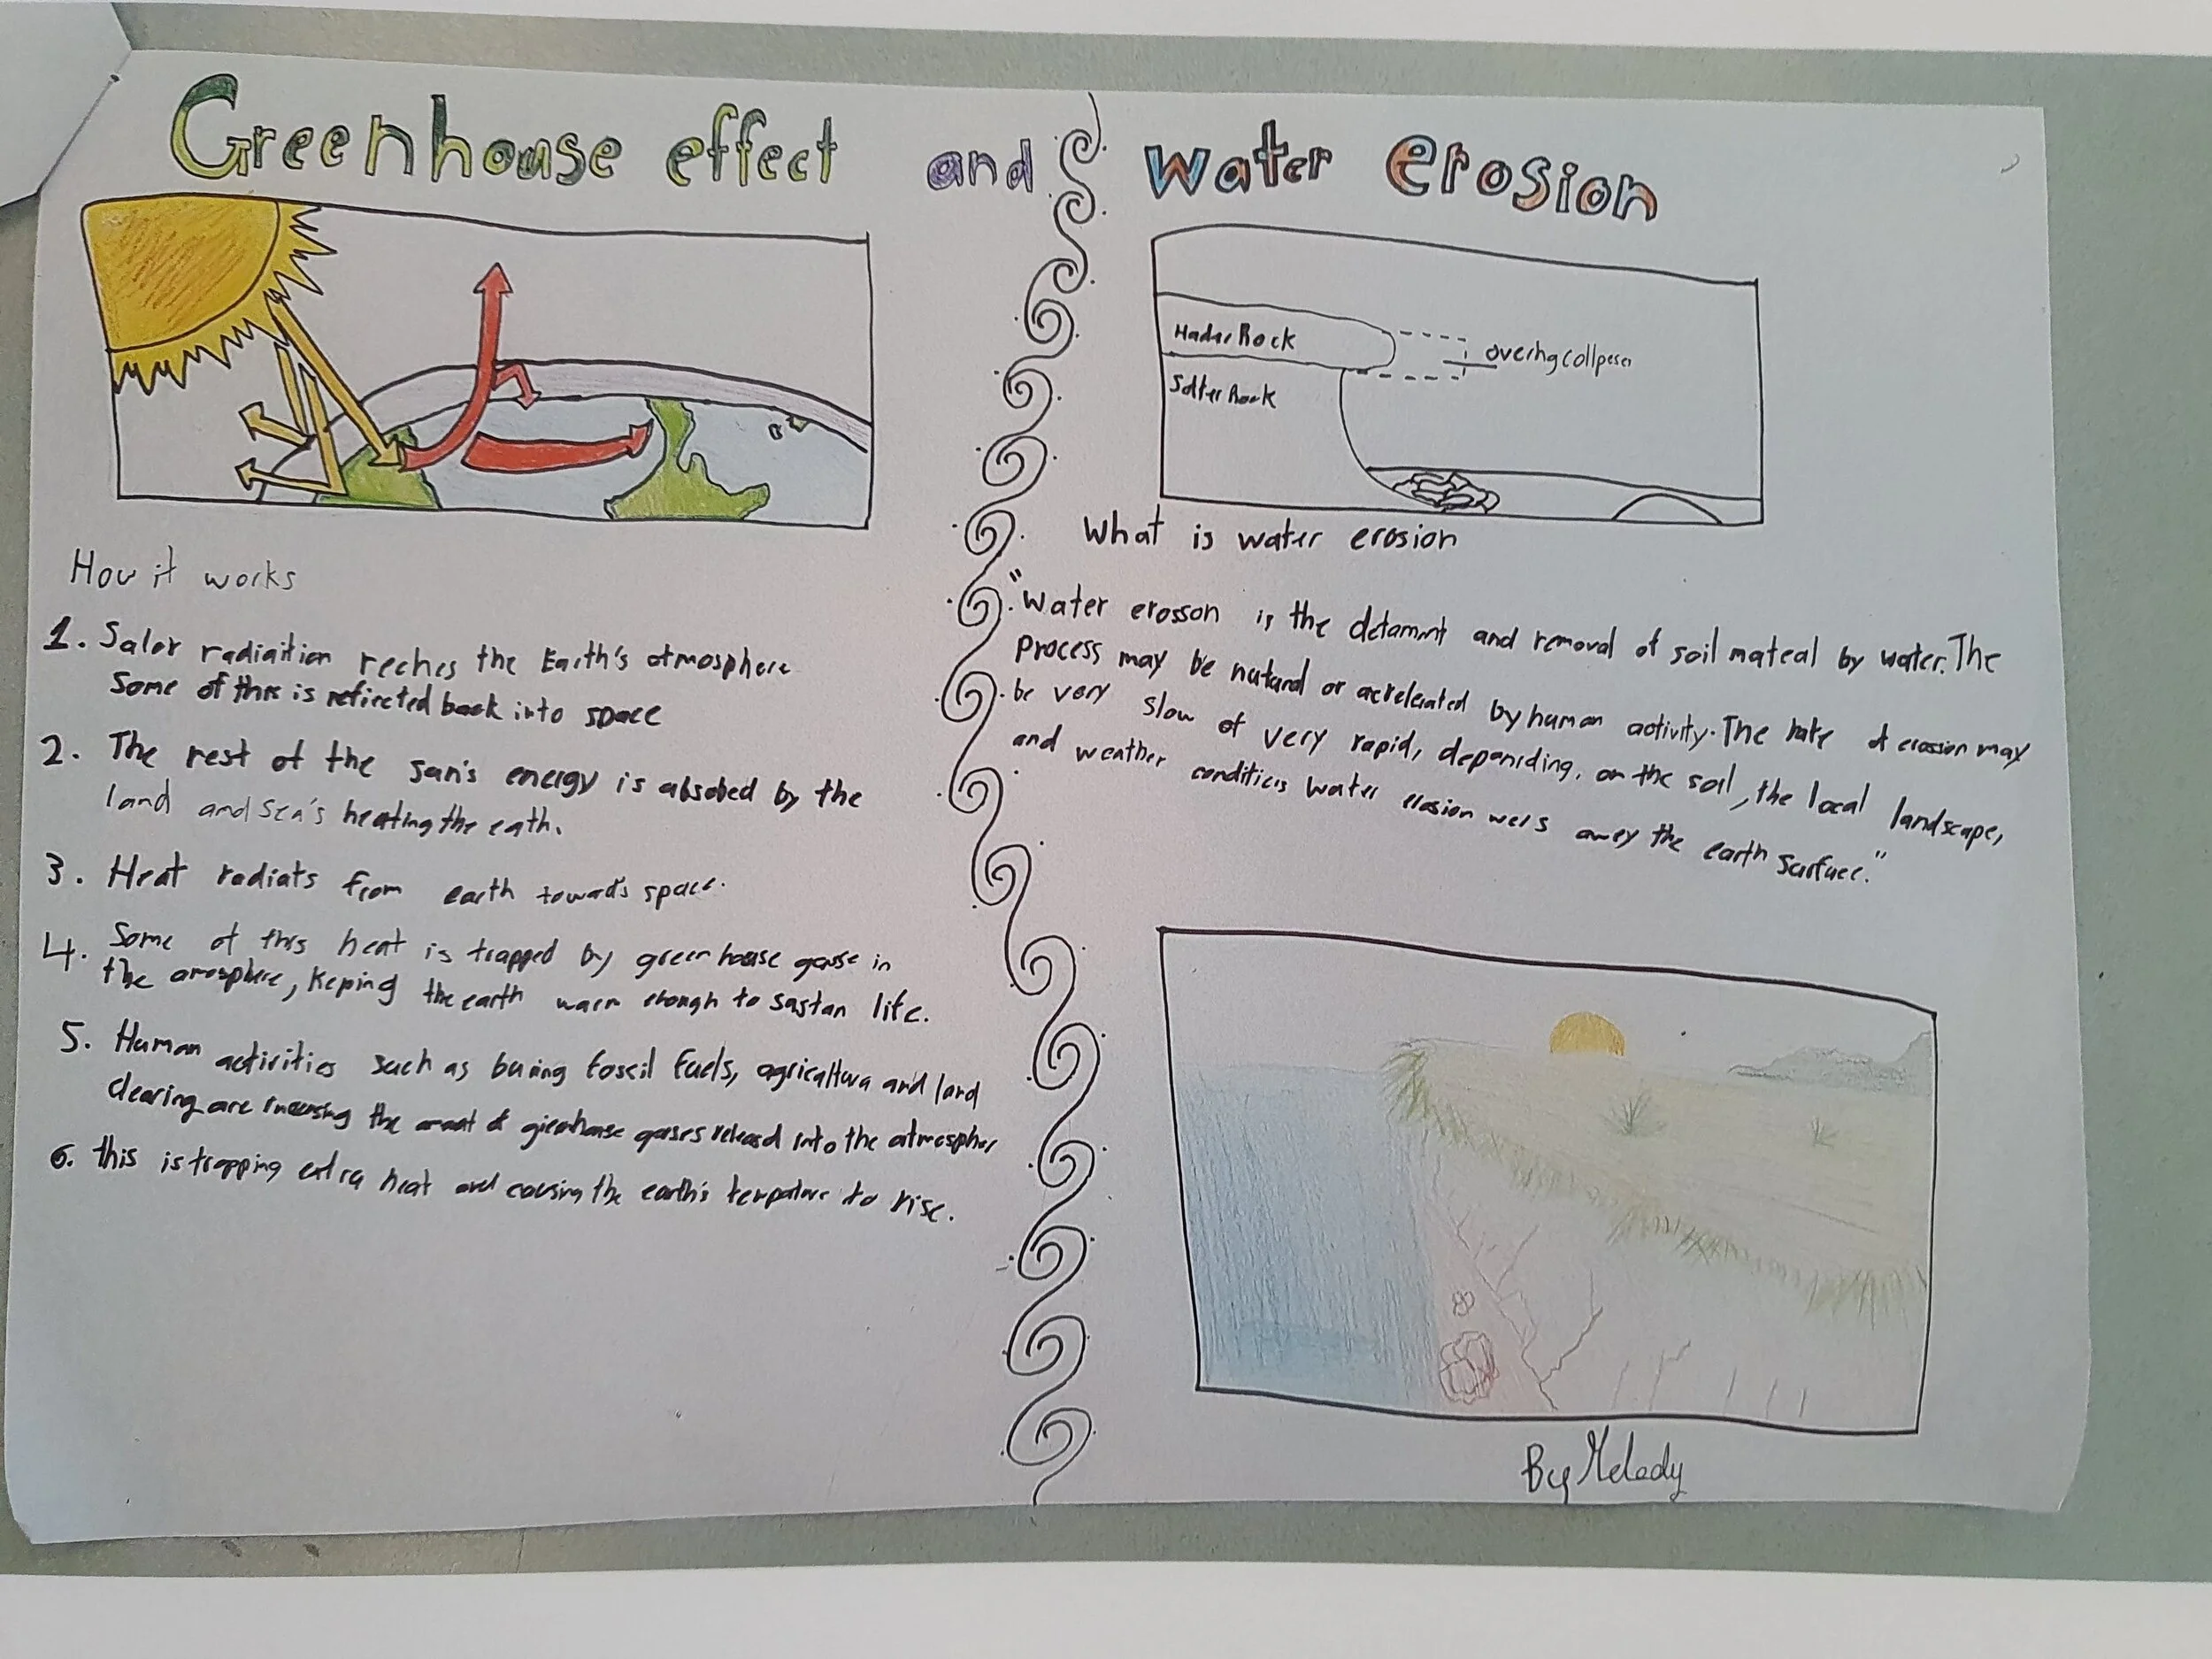 Greenhouse effect and water erosion
How it works
1. Salar radiaition reches the Earth's atmosphere
Some of this is reflected back into space
2. The rest of the sun's energy is absobed by the
land and sea's heating the eath.
3. Heat radiats from earth towards space.
4. Some of this heat is trapped by green house gase in
the amosphere, Keping the earth warm enough to sastan life.
5. Human activities such as buring fossil fuels, agricaltura and land
clearing are the of greenhouse gases releasd into the atmospher
6. this is trapping extra heat and causing the earth's to rise.
Hader Rock
Softer Rock
What is water erosion
"Water erosson is the and removal of soil mateal by water. The
Process may be or by human activity. The rate of erosion may
be very slow of very rapid, depending, on the soil, the local landscape,
and weather conditions water erosion wers awey the earth surface."
By Melody